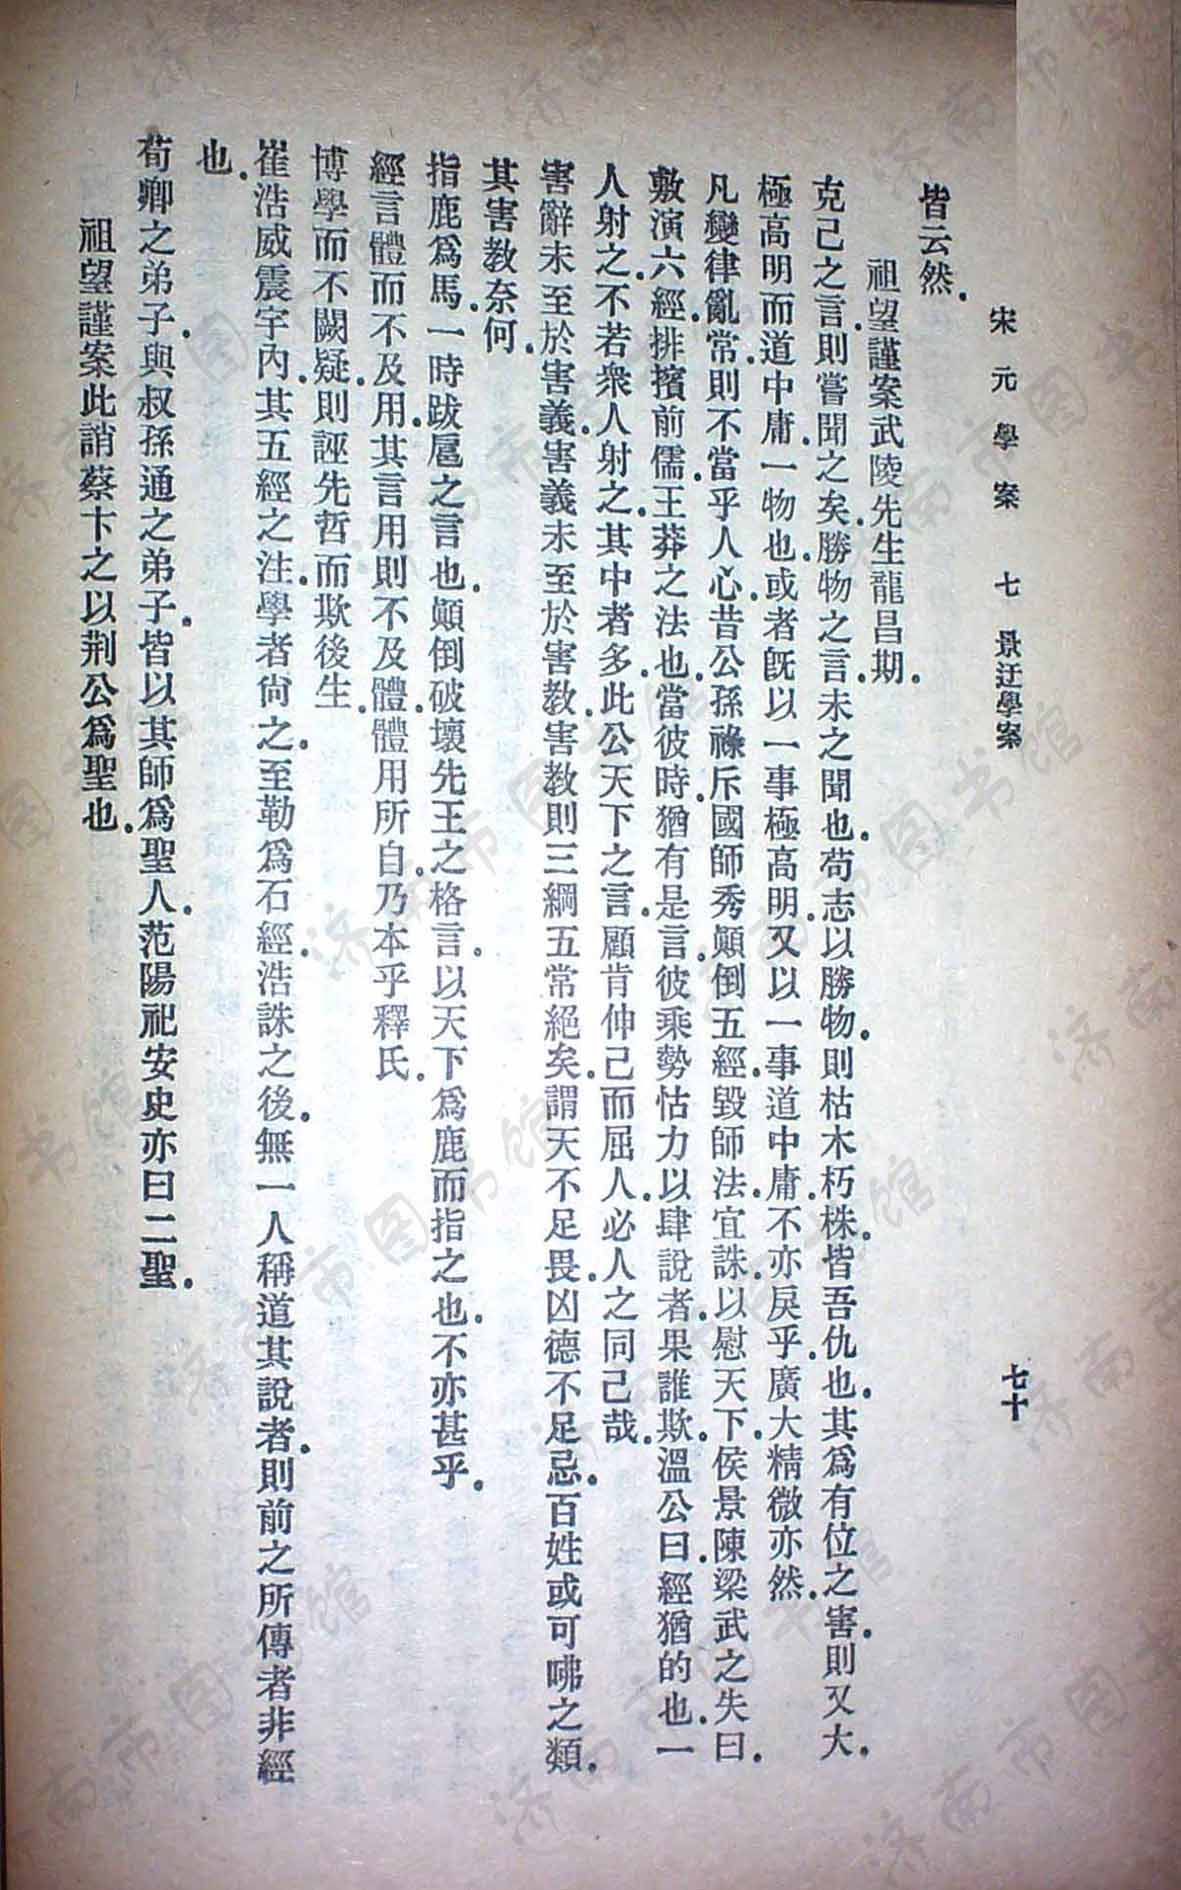 宋元學案 七 景迂學案 七十
皆云然．
祖望謹案武陵先生龍昌期．
克己之言．則嘗聞之矣．勝物之言．未之聞也．苟志以勝物．則枯木朽株．皆吾仇也．其爲有位之害．則又大．
極高明而道中庸．一物也．或者旣以一事極高明．又以一事道中庸．不亦戾乎．廣大精微亦然．
凡變律亂常．則不當乎人心．昔公孫祿斥國師秀．顚倒五經．毀師法．宜誅．以慰天下．侯景陳梁武之失曰．
敷演六經．排擯前儒．王莽之法也．當彼時猶有是言．彼乘勢怙力．以肆說者．果誰欺．溫公曰．經猶的也．一
人射之．不若衆人射之．其中者多．此公天下之言．顧肯伸己而屈人．必人之同己哉．
害辭未至於害義．害義未至於害教．害教則三綱五常絕矣．謂天不足畏．凶德不足忌．百姓或可咈之類．
其害教奈何．
指鹿爲馬．一時跋扈之言也．顚倒破壞先王之格言．以天下爲鹿而指之也．不亦甚乎．
經言體而不及用．其言用則不及體．體用所自．乃本乎釋氏．
博學而不闕疑．則誣先哲而欺後生．
崔浩威震宇內．其五經之注．學者尙之．至勒爲石經．浩誅之後．無一人稱道其說者．則前之所傳者非經
也．
荀卿之弟子．與叔孫通之弟子．皆以其師爲聖人．范陽祀安史亦曰二聖．
祖望謹案此誚蔡卞之以荆公爲聖也．